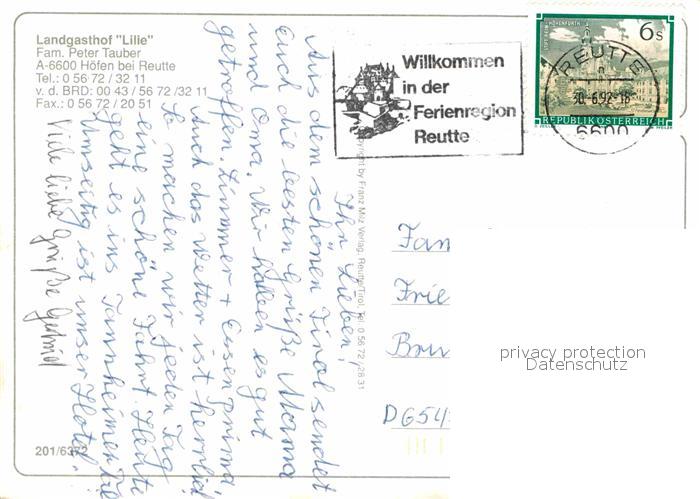 Landgasthof "Lilie"
Fam. Peter Tauber
A-6600 Höfen bei Reutte
Tel.: 0 56 72 / 32 11
v. d. BRD: 00 43 / 56 72 /32 11
Fax.: 0 56 72 / 20 51
Willkommen
in der
Ferienregion
Reutte
6 S
REPUBLIK ÖSTERREICH
REUTTE
30.-6.92-18
6600
Ihr Lieben!
Aus dem schönen Tirol sendet
euch die besten Grüße Mama
und Oma. Wir haben es gut
getroffen. Zimmer + Essen prima
Auch das Wetter ist herrlich
So machen wir jeden Tag
eine schöne Fahrt. Heute
geht es ins Tannheimer Tal
Umseitig ist unser Hotel.
Viele liebe Grüße
Copyright by Franz Milz Verlag, Reutte/Tirol, Tel. 0 56 72 /28 31
Fam
Frie
Bru
D654
privacy protection
Datenschutz
201/6372